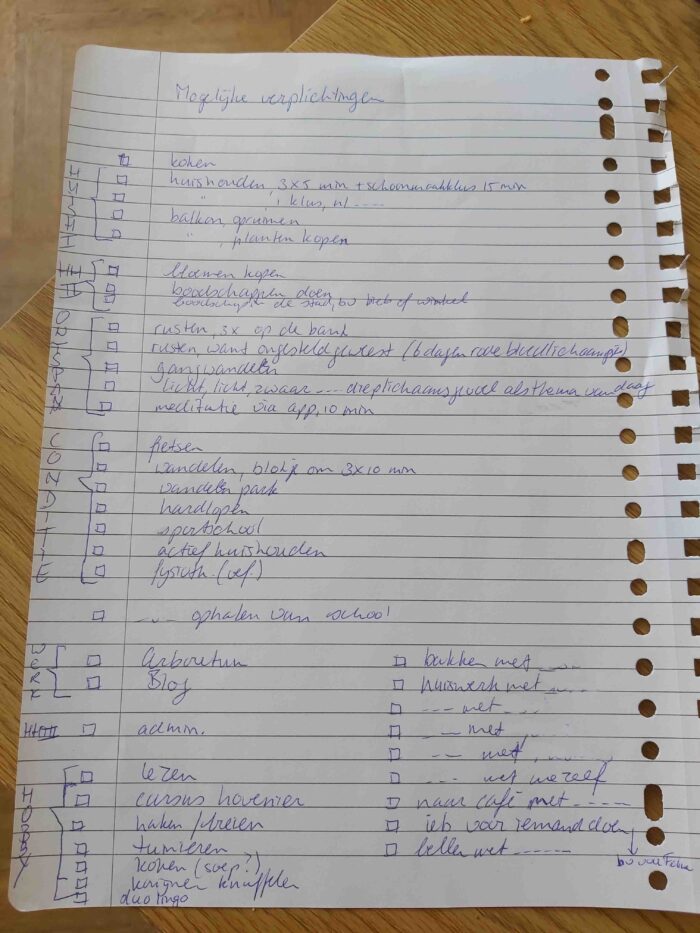 Mogelijke verplichtingen
koken
huishouden, 3x5 min + schoonmaakklus 15 min
" , 1 klus, nl ....
balkon, opruimen
" , planten kopen
bloemen kopen
boodschappen doen
boodschappen de stad, bv bieb of winkel
rusten, 3x op de bank
rusten, want ongesteld geweest (6 dagen rode bloedlichaampjes)
gang wandelen
licht, licht, zwaar --- diep lichaamsgevoel als thema vandaag
meditatie via app, 10 min
CONDITIE
fietsen
wandelen, blokje om 3x10 min
wandelen park
hardlopen
sportschool
actief huishouden
fysioth. (oef.)
--- ophalen van school
WERK
Arboretum
Blog
admin.
HOBBY
lezen
cursus hovenier
haken/breien
tuinieren
koken (soep?)
konijnen knuffelen
duolingo
bakken met -----
huiswerk met -----
--- met ---
--- met ---
--- met ---
--- met mezelf
naar café met -----
iets voor iemand doen
bellen met ------
bv voor